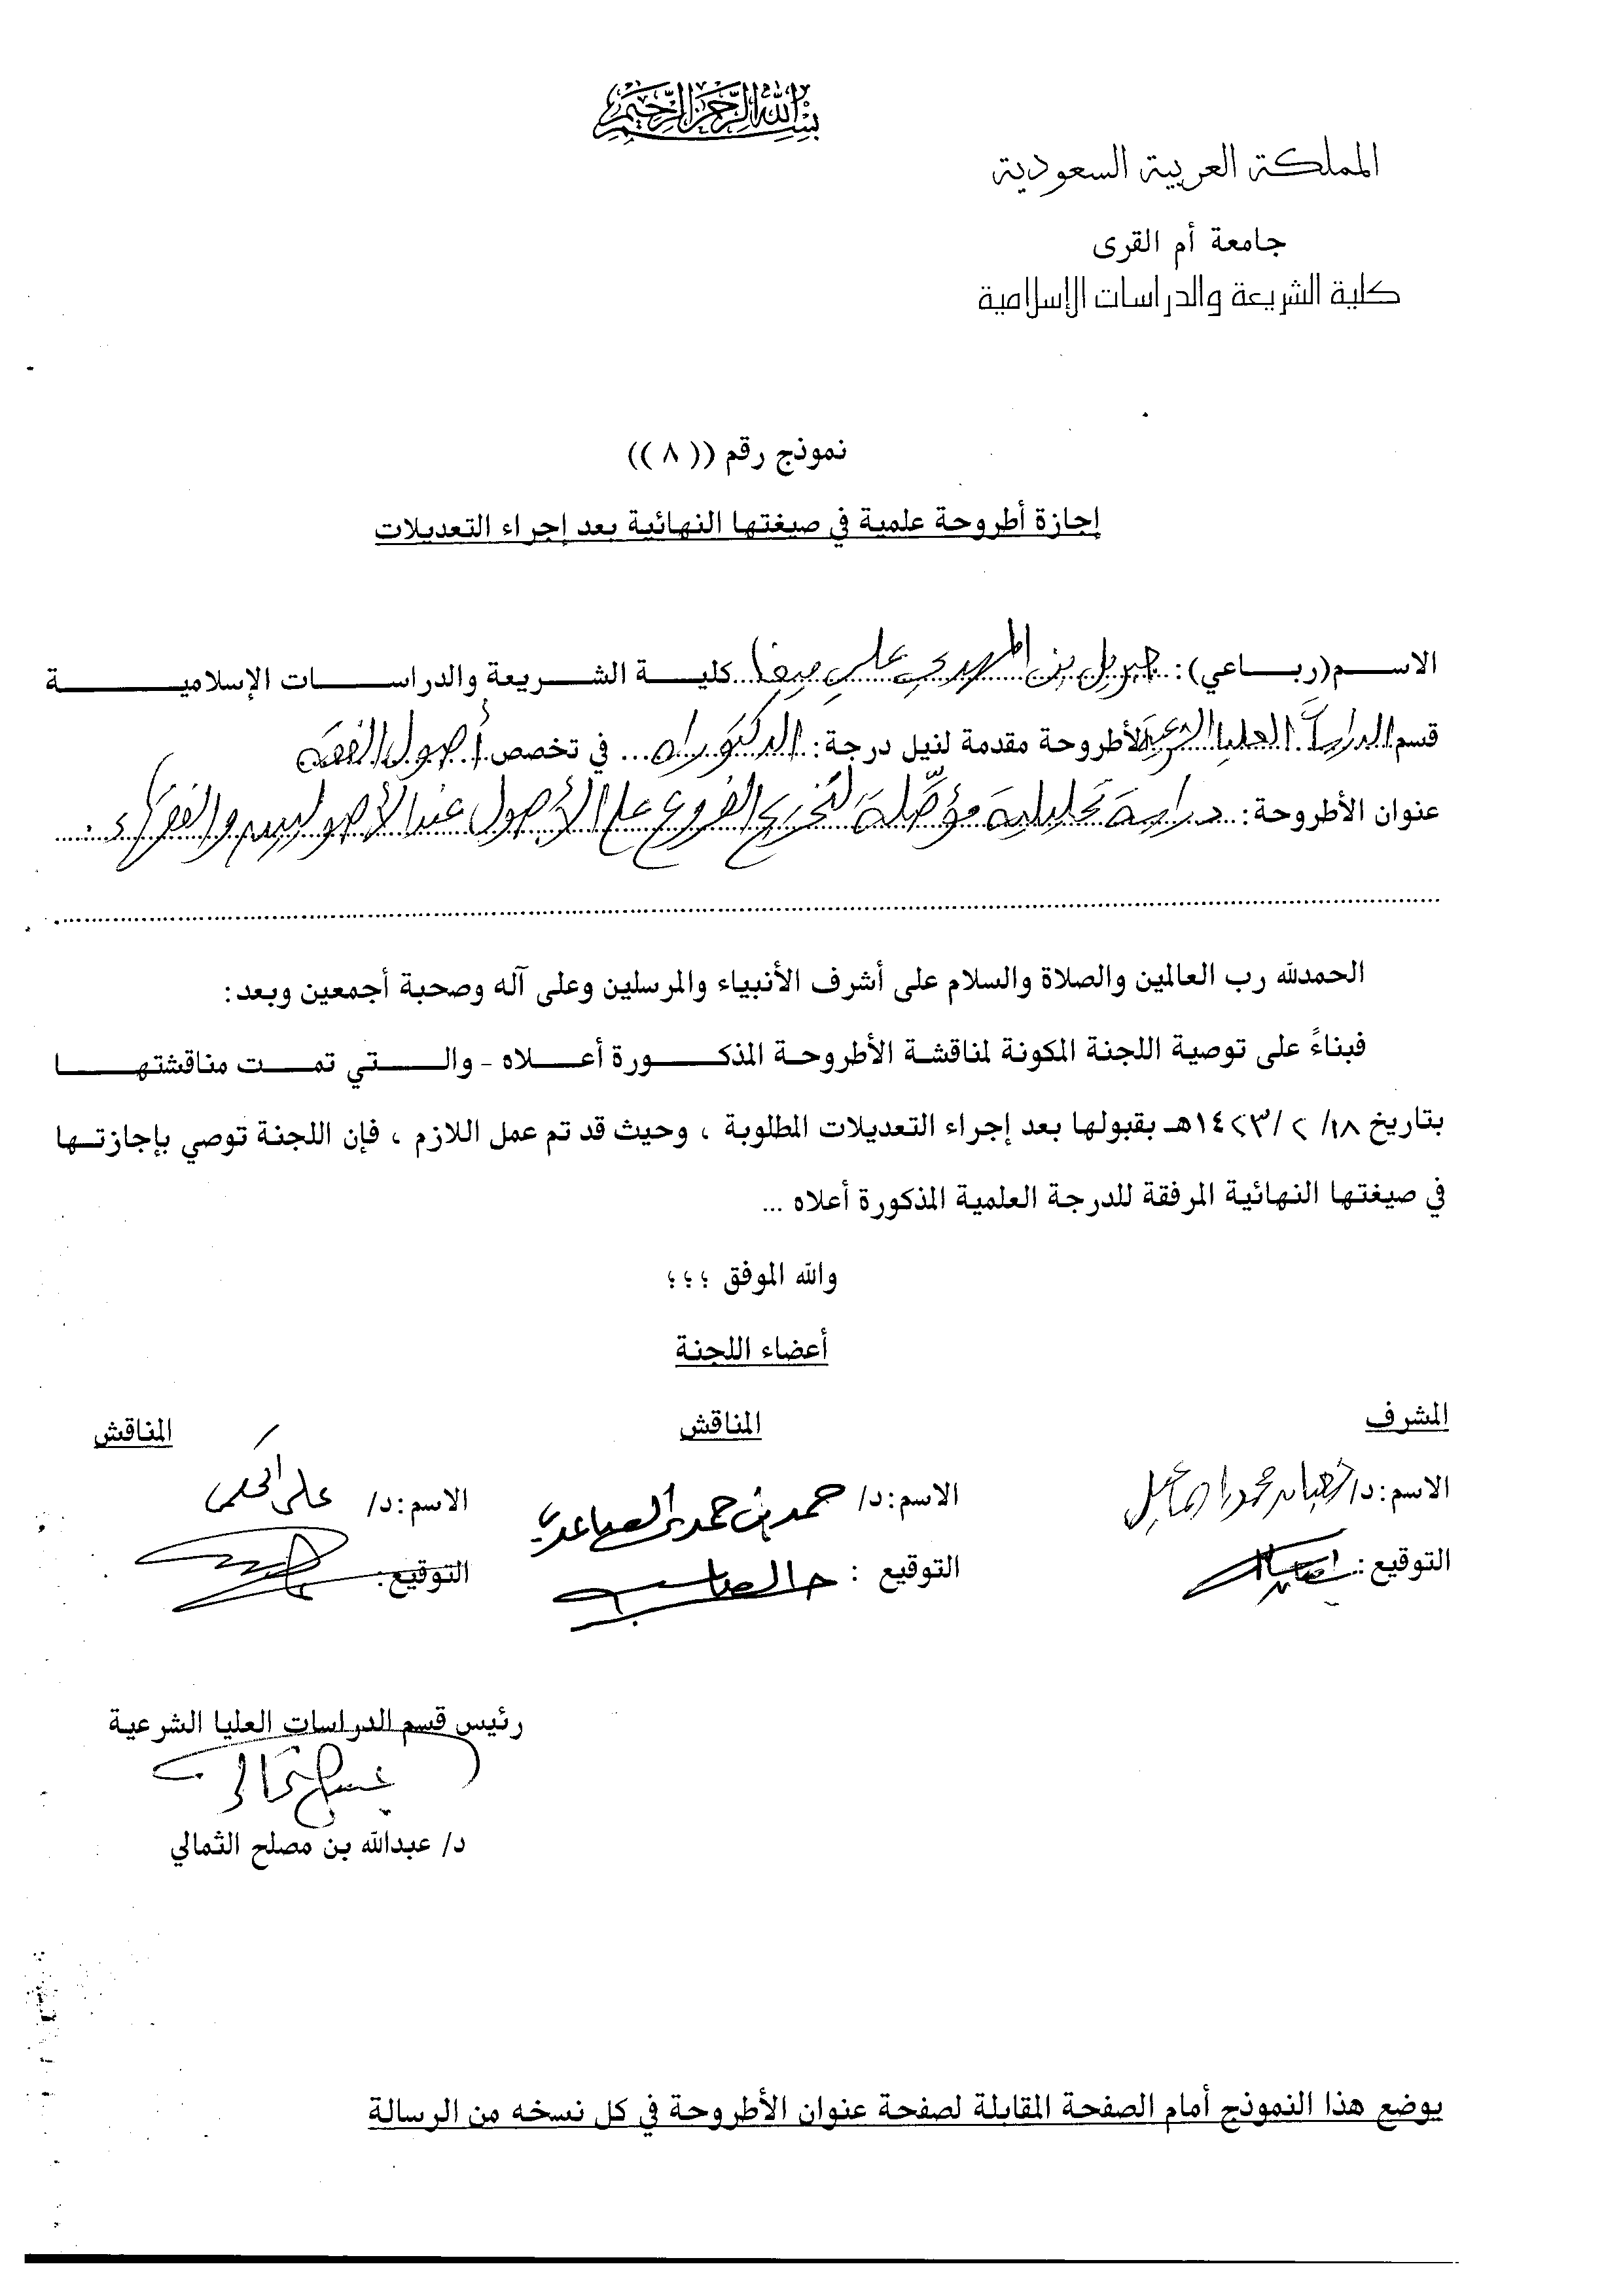 بسم الله الرحمن الرحيم
المملكة العربية السعودية
جامعة أم القرى
كلية الشريعة والدراسات الإسلامية
نموذج رقم ((٨))
إجازة أطروحة علمية في صيغتها النهائية بعد إجراء التعديلات
الاسم(رباعي): جبريل بن المهدي علي ميغا كلية الشريعة والدراسات الإسلامية
قسم الدراسات العليا الشرعية الأطروحة مقدمة لنيل درجة: الدكتوراه... في تخصص أصول الفقه
عنوان الأطروحة: دراسة تحليلية مؤصّلة لتخريج الفروع على الأصول عند الأصوليين والفقهاء.
الحمدلله رب العالمين والصلاة والسلام على أشرف الأنبياء والمرسلين وعلى آله وصحبة أجمعين وبعد:
فبناءً على توصية اللجنة المكونة لمناقشة الأطروحة المذكورة أعلاه - والتي تمت مناقشتها
بتاريخ ١٨/ ٢ /١٤٢٣هـ بقبولها بعد إجراء التعديلات المطلوبة ، وحيث قد تم عمل اللازم ، فإن اللجنة توصي بإجازتها
في صيغتها النهائية المرفقة للدرجة العلمية المذكورة أعلاه ...
والله الموفق ؛ ؛ ؛
أعضاء اللجنة
المشرف المناقش المناقش
الاسم: د/ شعبان محمد إسماعيل الاسم: د/ حمد بن حمدي الصاعدي الاسم: د/ علي الحكمي
التوقيع: التوقيع : التوقيع:
رئيس قسم الدراسات العليا الشرعية
د/ عبدالله بن مصلح الثمالي
يوضع هذا النموذج أمام الصفحة المقابلة لصفحة عنوان الأطروحة في كل نسخه من الرسالة